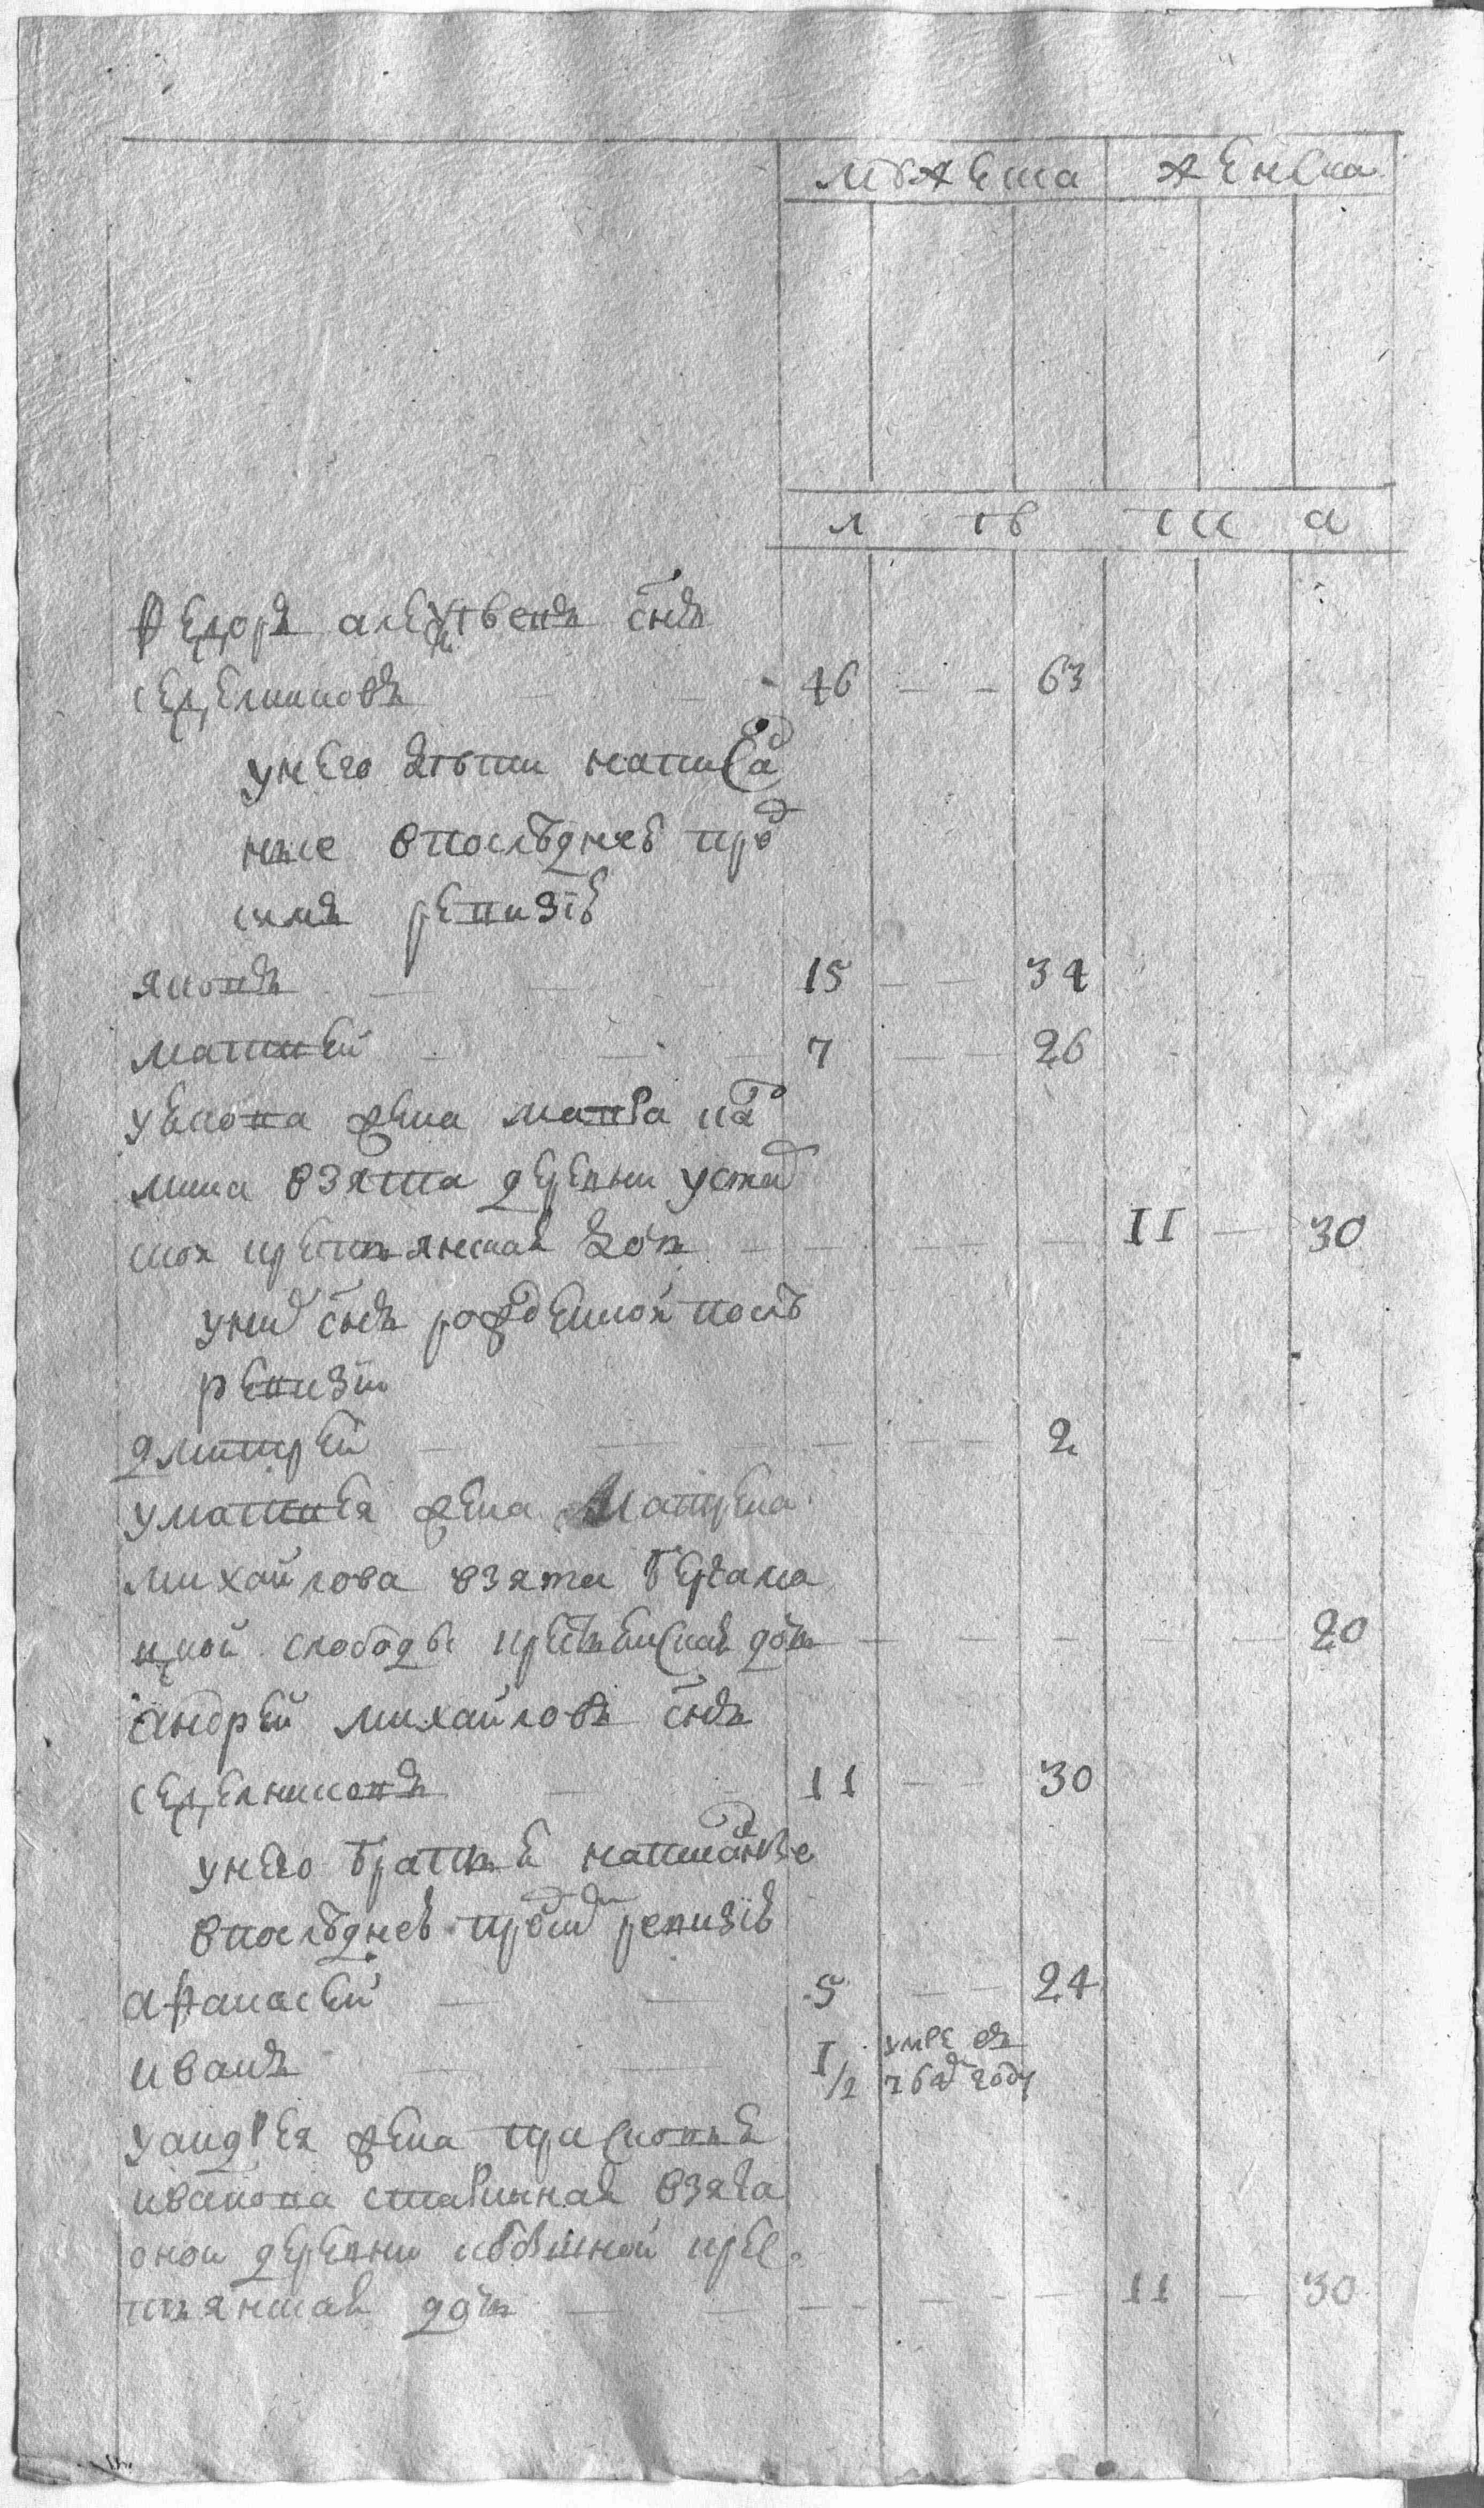 мужеска женска
л ѣ т а
Федоръ алеѯѣевъ снъ
селѣниковъ 46 63
унего дѣти написа
ные впослѣднеѣ пре
ѕ ревизiѣ
яковъ 15 34
матвей 7 26
уякова жена мавра
мина взята деревни
крестьянская дочь 11 30
унихъ снъ рожденной послѣ
ревизiи
дмитрей 2
уматвея жена матрена
михайлова взята
цкой слободы крестьянская дочь 20
андрей михайловъ снъ
селѣниковъ 11 30
унего братья написаные
впослѣднеѣ пред ревизiѣ
афанасей 5 24
иванъ 1/2 умре въ
году
уандрея жена прасковья
иванова старинная взята
оной деревни крес
тьянская дочь 11 30